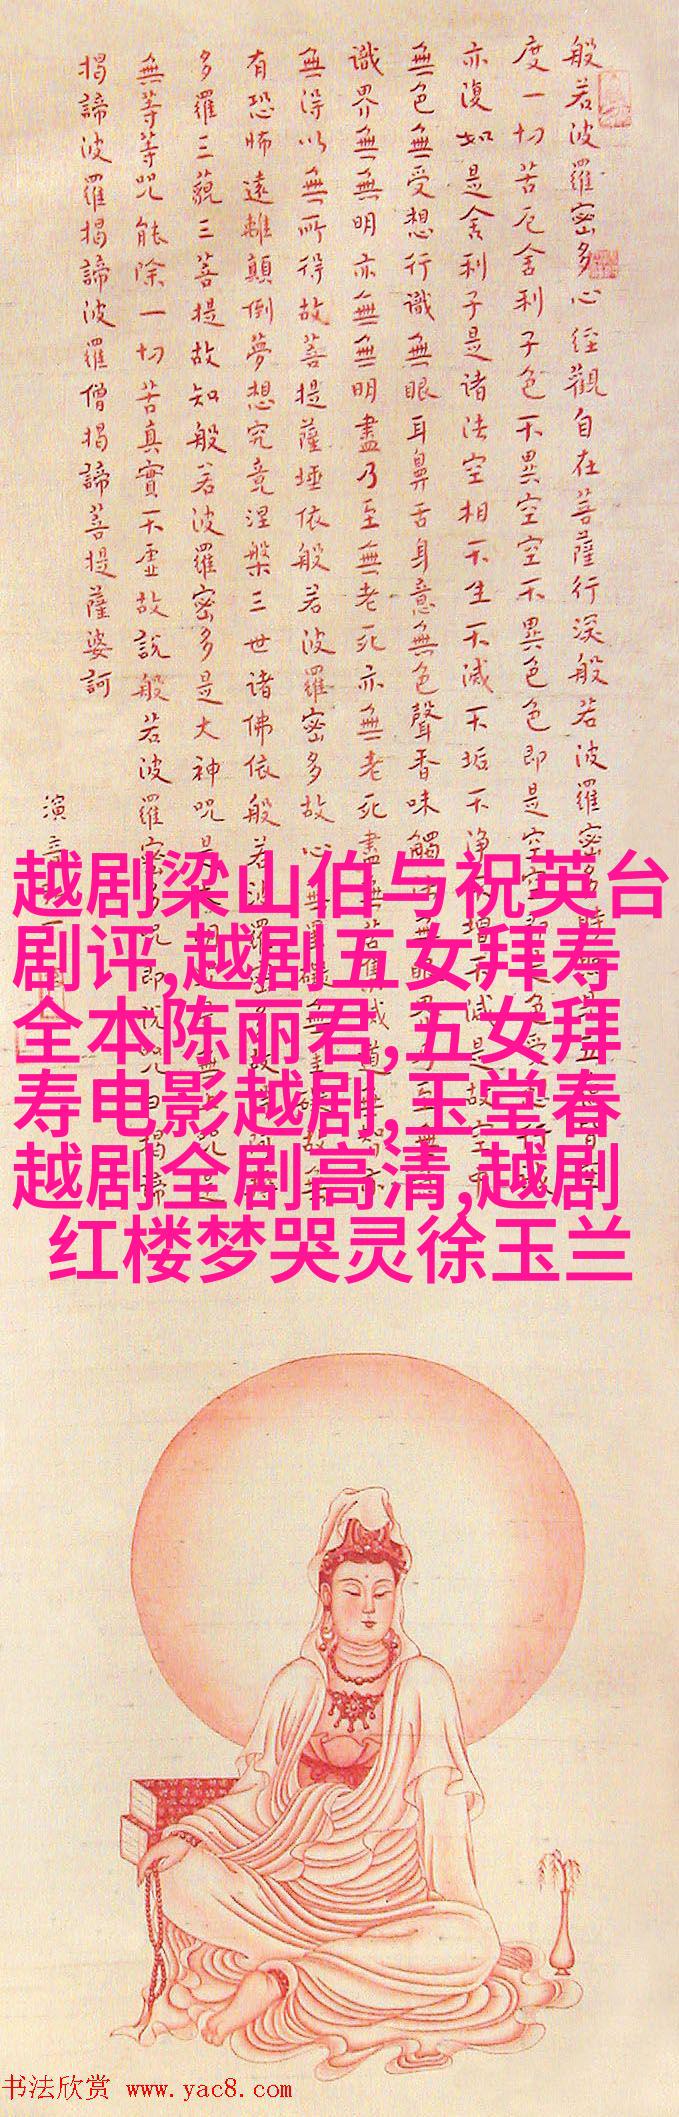 般若波羅密多心經觀自在菩薩行深般若波羅密多時
度一切苦厄舍利子色不異空空不異色色即是空空
亦復如是舍利子是諸法空相不生不滅不垢不淨不增不減是故空中
無色無受想行識無眼耳鼻舌身意無色聲香味觸法無眼界乃至無
識界無無明亦無無明盡乃至無老死亦無老死盡無苦集滅道無智亦
無得以無所得故菩提薩埵依般若波羅密多故心無罣礙無罣礙故無
有恐怖遠離顛倒夢想究竟涅槃三世諸佛依般若波羅密多故
多羅三藐三菩提故知般若波羅密多是大神咒是大明咒是無上咒是
無等等咒能除一切苦真實不虛故說般若波羅密多咒即說咒曰揭諦
揭諦波羅揭諦波羅僧揭諦菩提薩婆訶
演音
越剧梁山伯与祝英台
剧评,越剧五女拜寿
全本陈丽君,五女拜
寿电影越剧,玉堂春
越剧全剧高清,越剧
红楼梦哭灵徐玉兰
书法欣赏 www.yac8.com